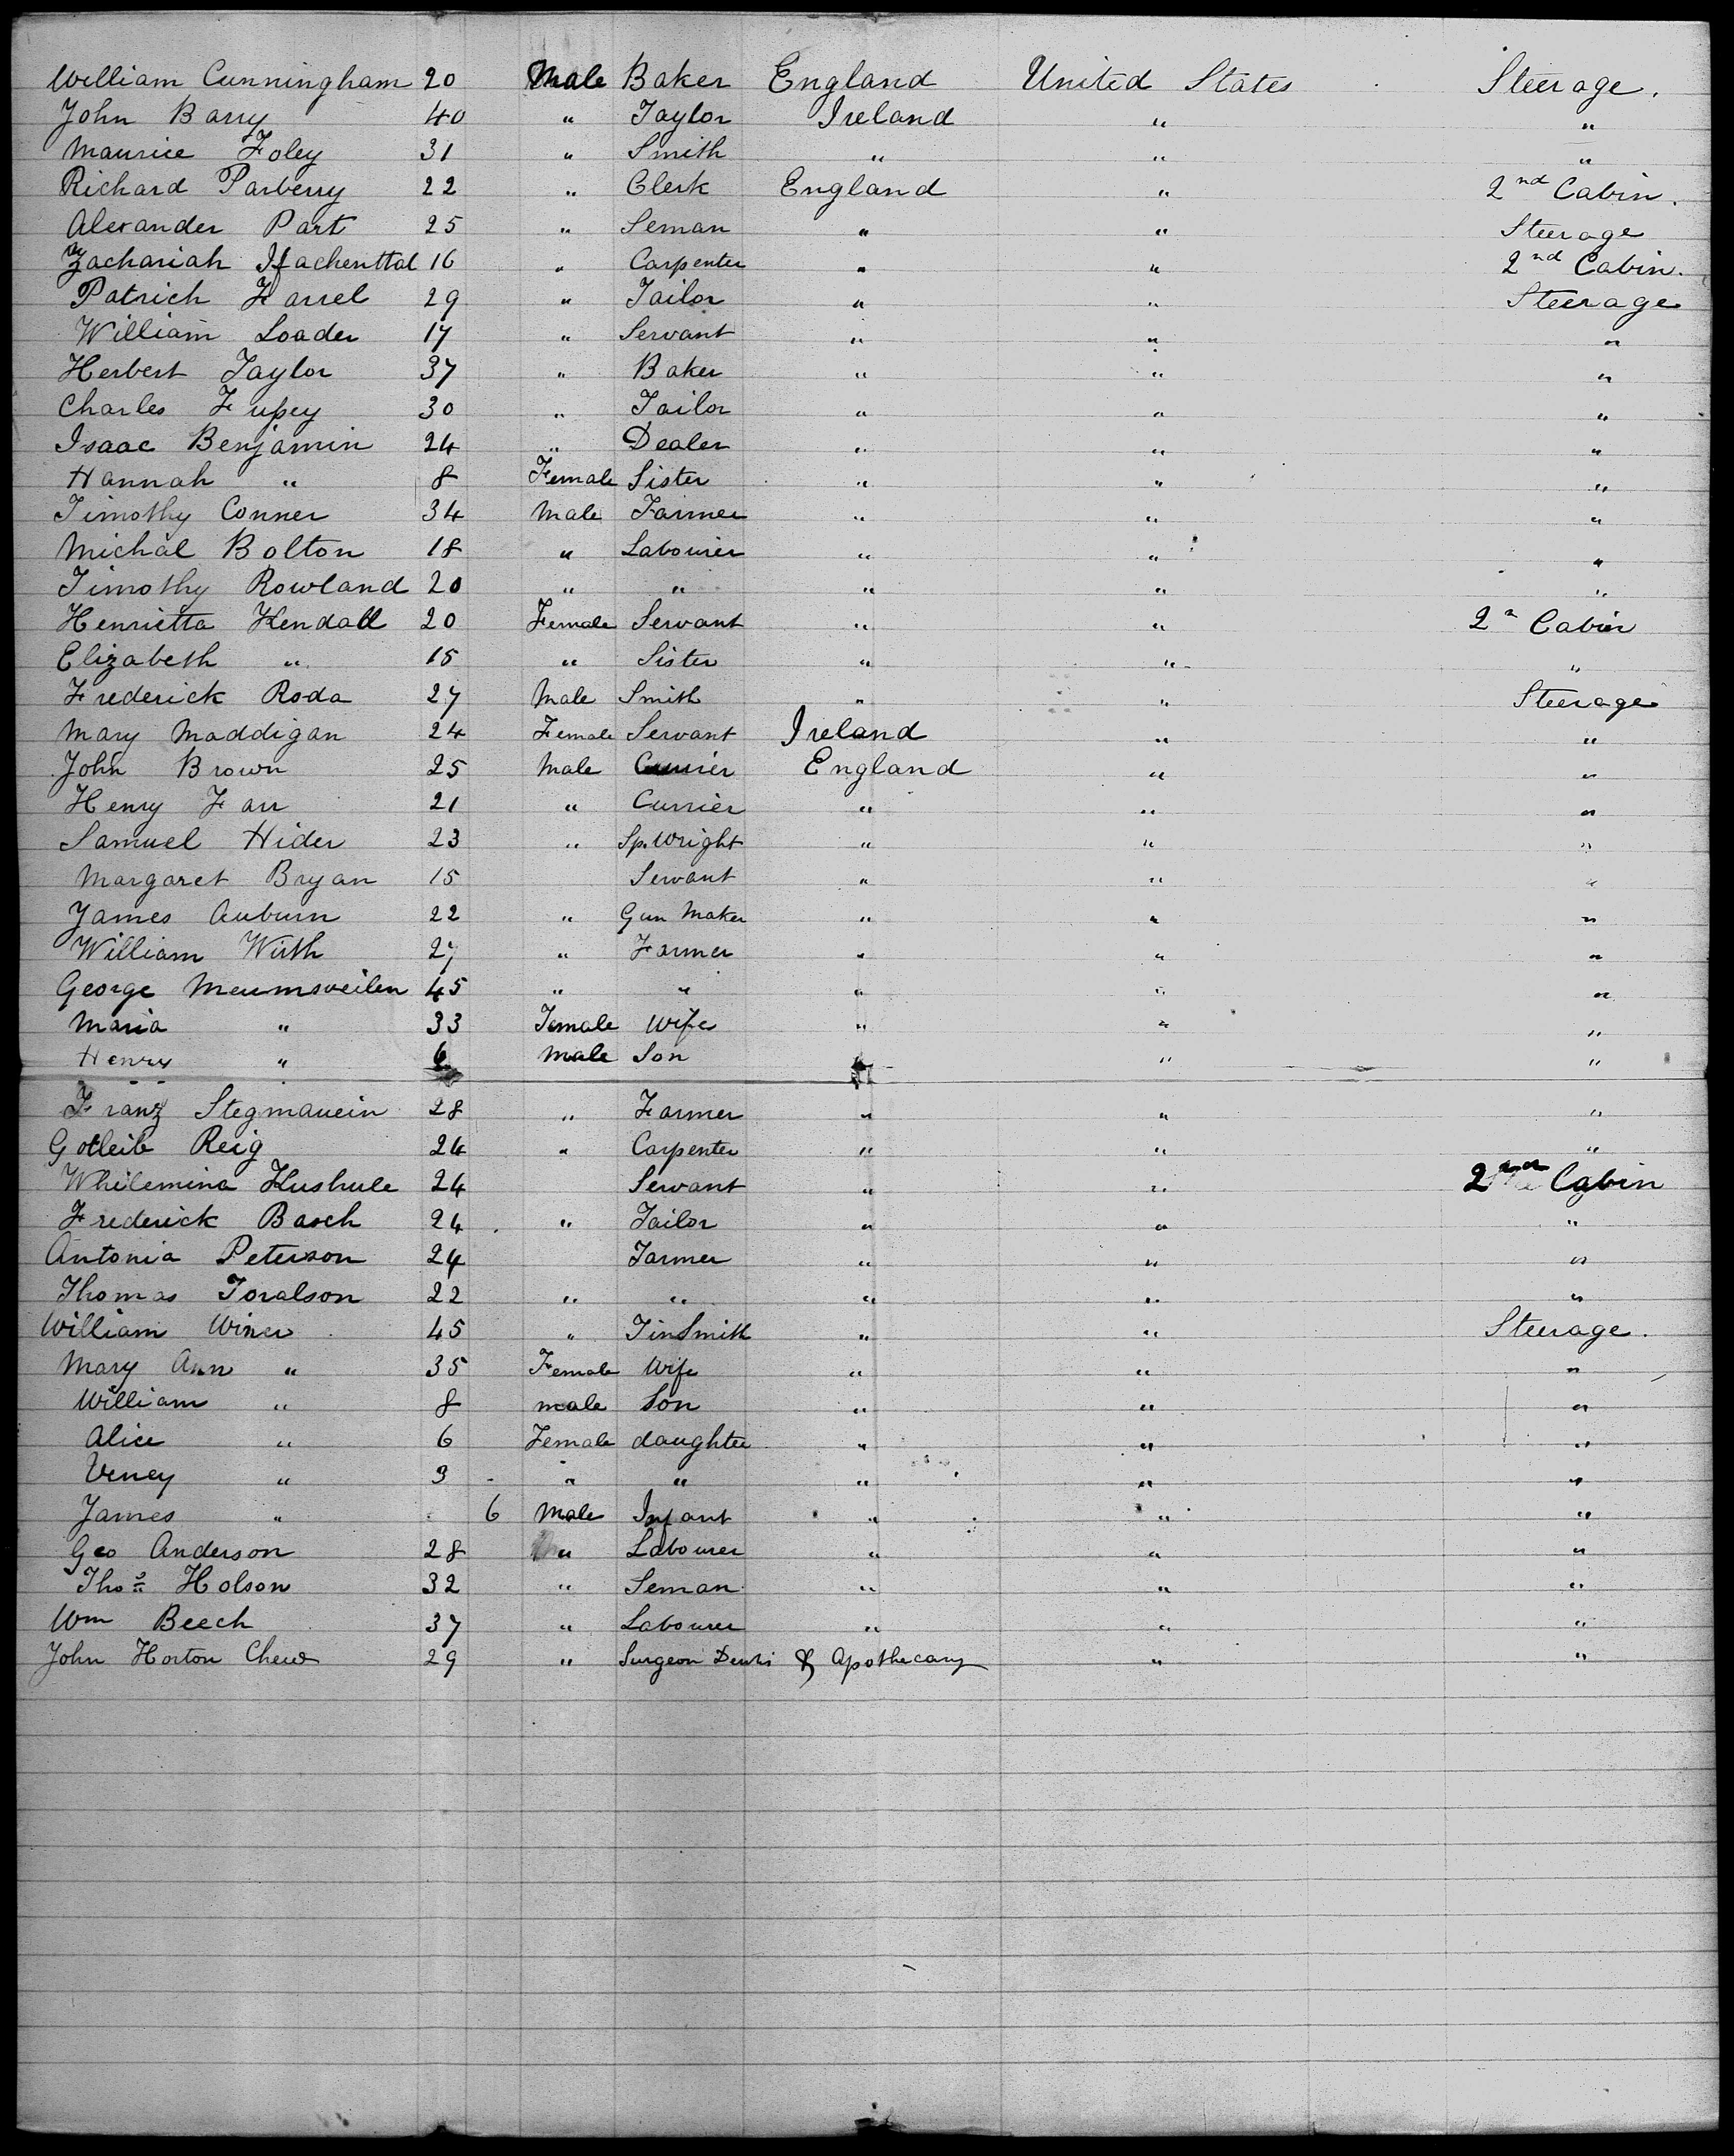 William Cunningham 20 Male Baker England United States Steerage.
John Barry 40 " Taylor Ireland " "
Maurice Foley 31 " Smith " " "
Richard Parberry 22 " Clerk England " 2nd Cabin.
Alexander Part 25 " Seman " " Steerage
Zachariah 16 " Carpenter " " 2nd Cabin.
Patrich Farrel 29 " Tailor " " Steerage
William Loader 17 " Servant " " "
Herbert Taylor 37 " Baker " " "
Charles 30 " Tailor " " "
Isaac Benjamin 24 " Dealer " " "
Hannah " 8 Female Sister " " "
Timothy Conner 34 Male Farmer " " "
Michal Bolton 18 " Labourier " " "
Timothy Rowland 20 " " " " "
Henrietta Kendall 20 Female Servant " " 2n Cabin
Elizabeth " 15 " Sister " " "
Frederick Roda 27 Male Smith " " Steerage
Mary Maddigan 24 Female Servant Ireland " "
John Brown 25 Male Currier England " "
Henry Farr 21 " Currier " " "
Samuel Hider 23 " Sp. Wright " " "
Margaret Bryan 15 Servant " " "
James Auburn 22 " Gun Maker " " "
William Wirth 27 " Farmer " " "
George Meumsveilen 45 " " " " "
Maria " 33 Female Wife " " "
Henry " 6 Male Son " " "
Franz Stegmauein 28 " Farmer " " "
Gotleib Reig 24 " Carpenter " " "
Whilemina Kushule 24 Servant " " 2nd Cabin
Frederick Basch 24 " Tailor " " "
Antonia Peterson 24 Farmer " " "
Thomas Toralson 22 " " " " "
William Winer 45 " TinSmith " " Steerage.
Mary Ann " 35 Female Wife " " "
William " 8 male Son " " "
Alice " 6 Female daughter " " "
Veney " 3 " " " " "
James " 6 Male Infant " " "
Geo Anderson 28 " Labourer " " "
Thos Holson 32 " Seman " " "
Wm Beech 37 " Labourer " " "
John Horton Chew 29 " Surgeon & Apothecary " "